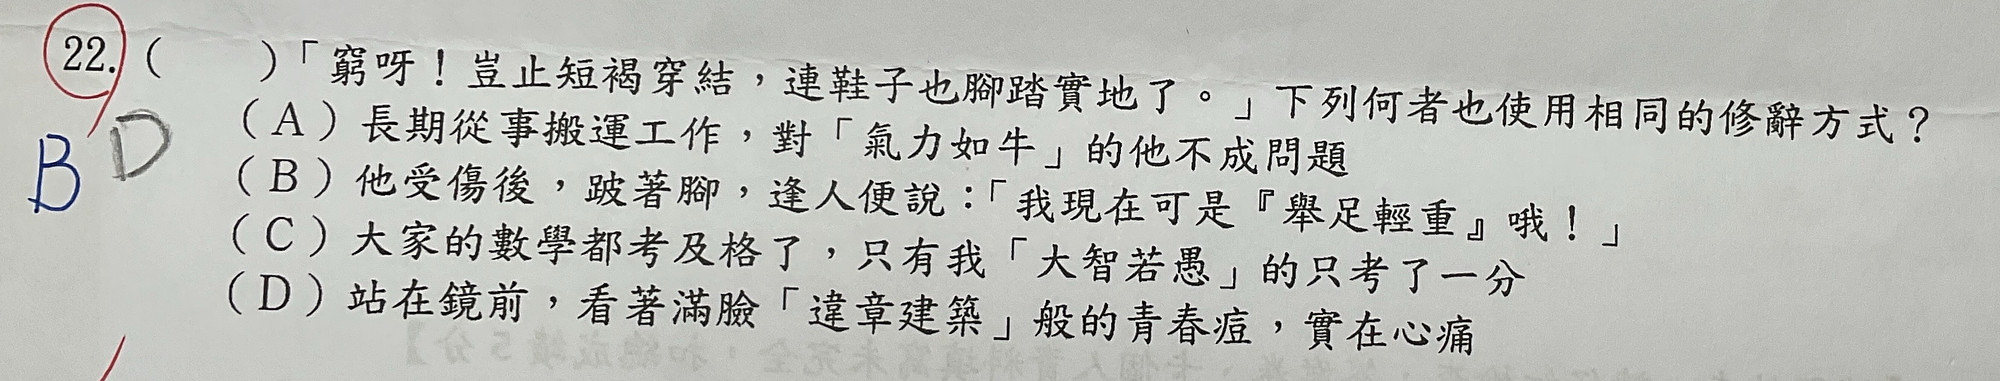 22.(　　)「窮呀！豈止短褐穿結，連鞋子也腳踏實地了。」下列何者也使用相同的修辭方式？
(A)長期從事搬運工作，對「氣力如牛」的他不成問題
(B)他受傷後，跛著腳，逢人便說：「我現在可是『舉足輕重』哦！」
(C)大家的數學都考及格了，只有我「大智若愚」的只考了一分
(D)站在鏡前，看著滿臉「違章建築」般的青春痘，實在心痛
B D